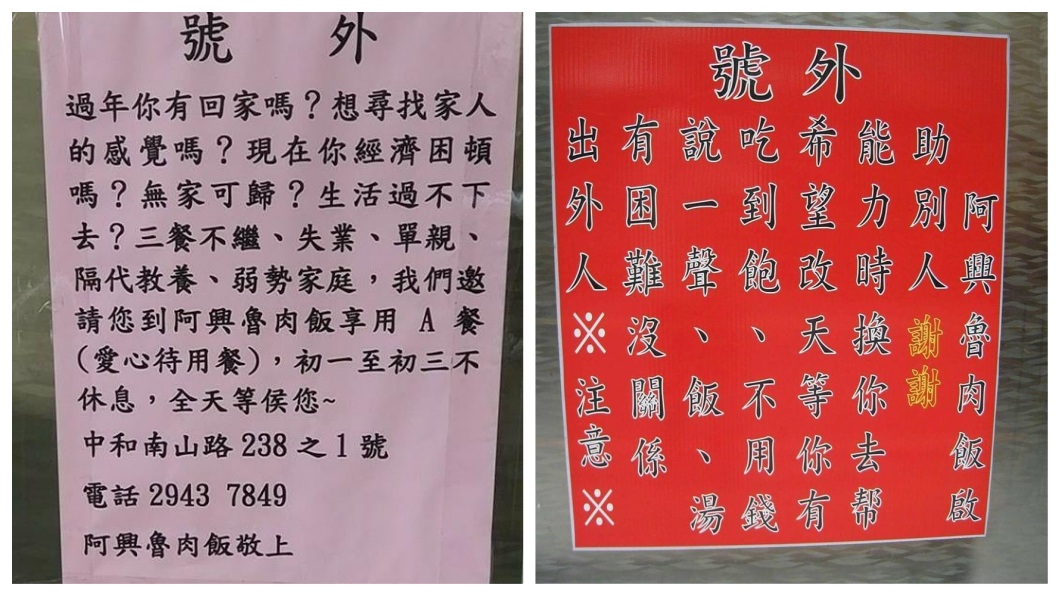 號 外
過年你有回家嗎？想尋找家人
的感覺嗎？現在你經濟困頓
嗎？無家可歸？生活過不下
去？三餐不繼、失業、單親、
隔代教養、弱勢家庭，我們邀
請您到阿興魯肉飯享用 A 餐
(愛心待用餐)，初一至初三不
休息，全天等侯您~
中和南山路 238 之 1 號
電話 2943 7849
阿興魯肉飯敬上
號外
出外人※注意※
有困難沒關係
說一聲、飯、湯
吃到飽、不用錢
希望改天等你有
能力時換你去帮
助別人謝謝
阿興魯肉飯啟